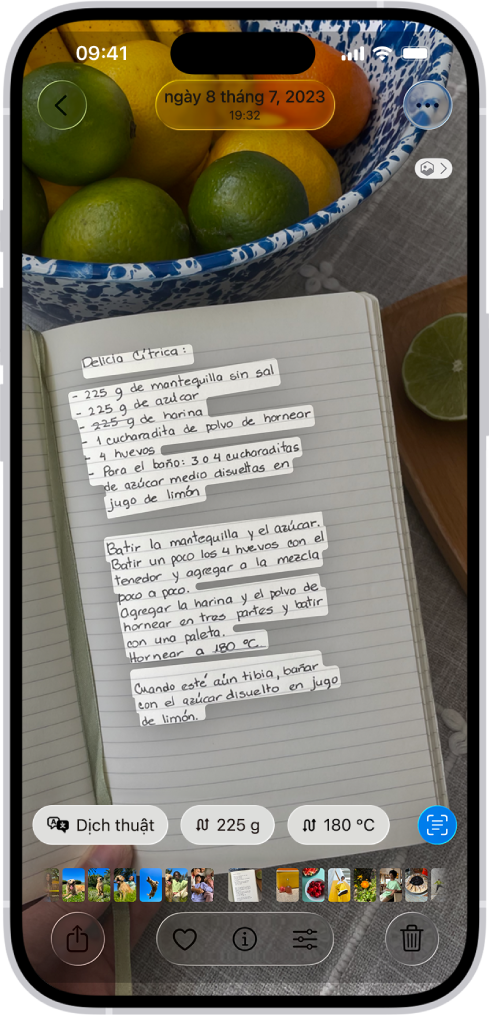 09:41
ngày 8 tháng 7, 2023
19:32
Delicia Cítrica:
- 225 g de mantequilla sin sal
- 225 g de azúcar
- 225 g de harina
- 1 cucharadita de polvo de hornear
- 4 huevos
- Para el baño: 3 o 4 cucharaditas
de azúcar medio disueltas en
jugo de limón
Batir la mantequilla y el azúcar.
Batir un poco los 4 huevos con el
tenedor y agregar a la mezcla
poco a poco.
Agregar la harina y el polvo de
hornear en tres partes y batir
con una paleta.
Hornear a 180 °C.
Cuando esté aún tibia, bañar
con el azúcar disuelto en jugo
de limón.
Dịch thuật
225 g
180 °C